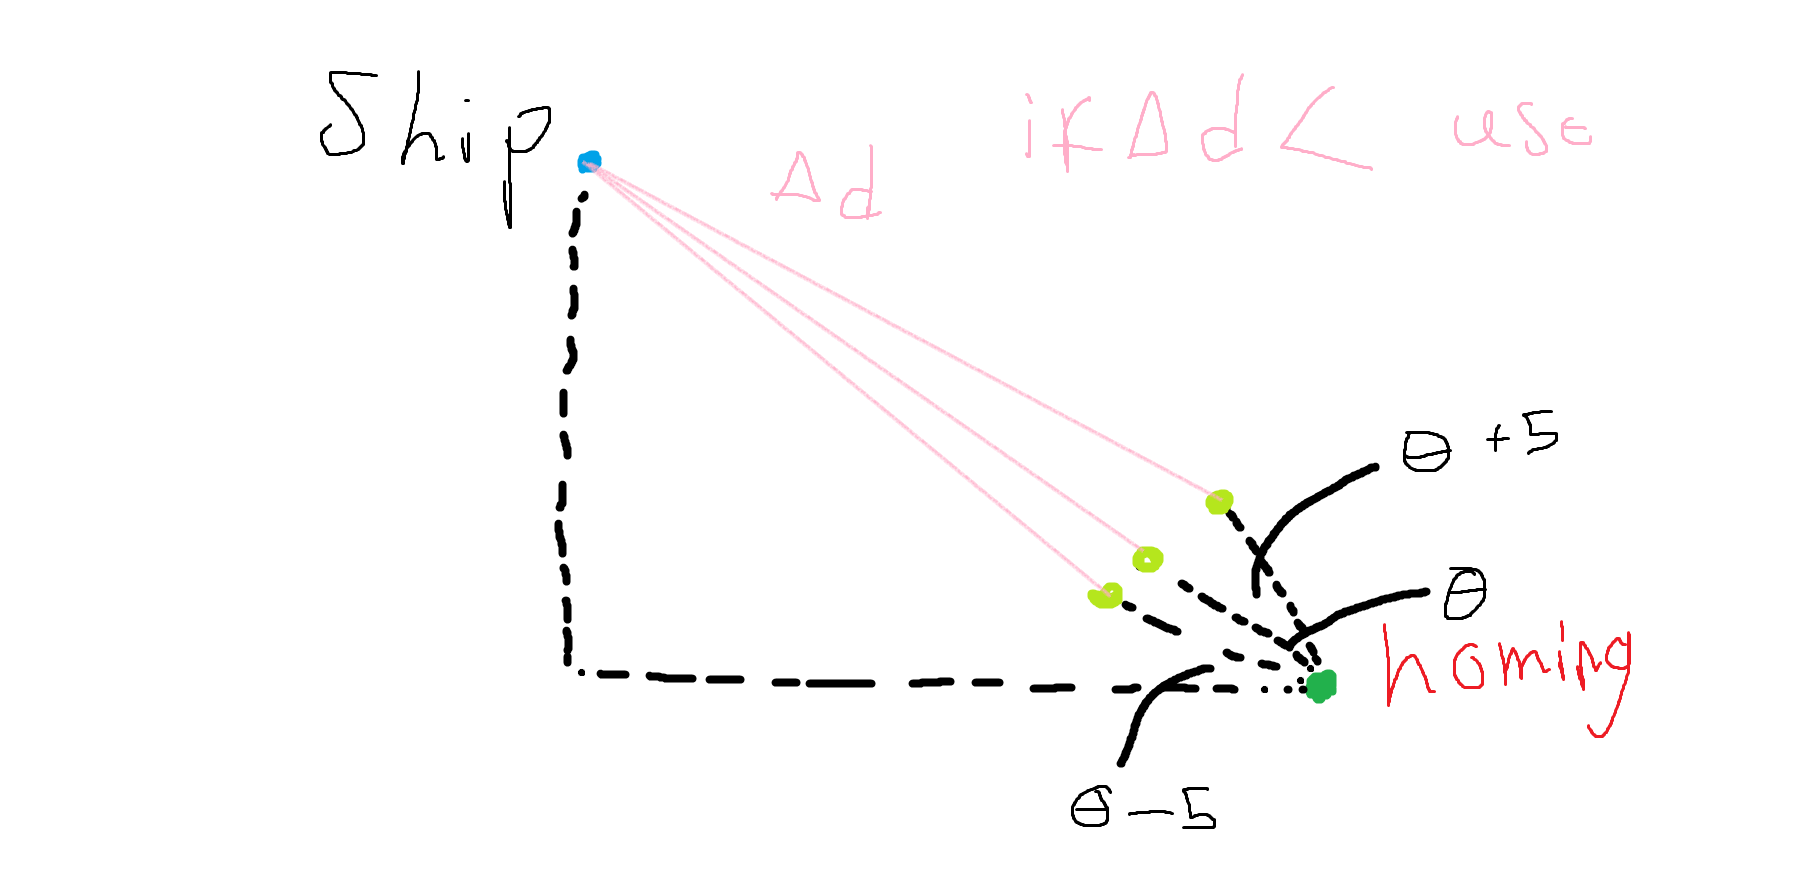 Ship
Δd
if Δd < use
θ +5
θ
homing
θ - 5